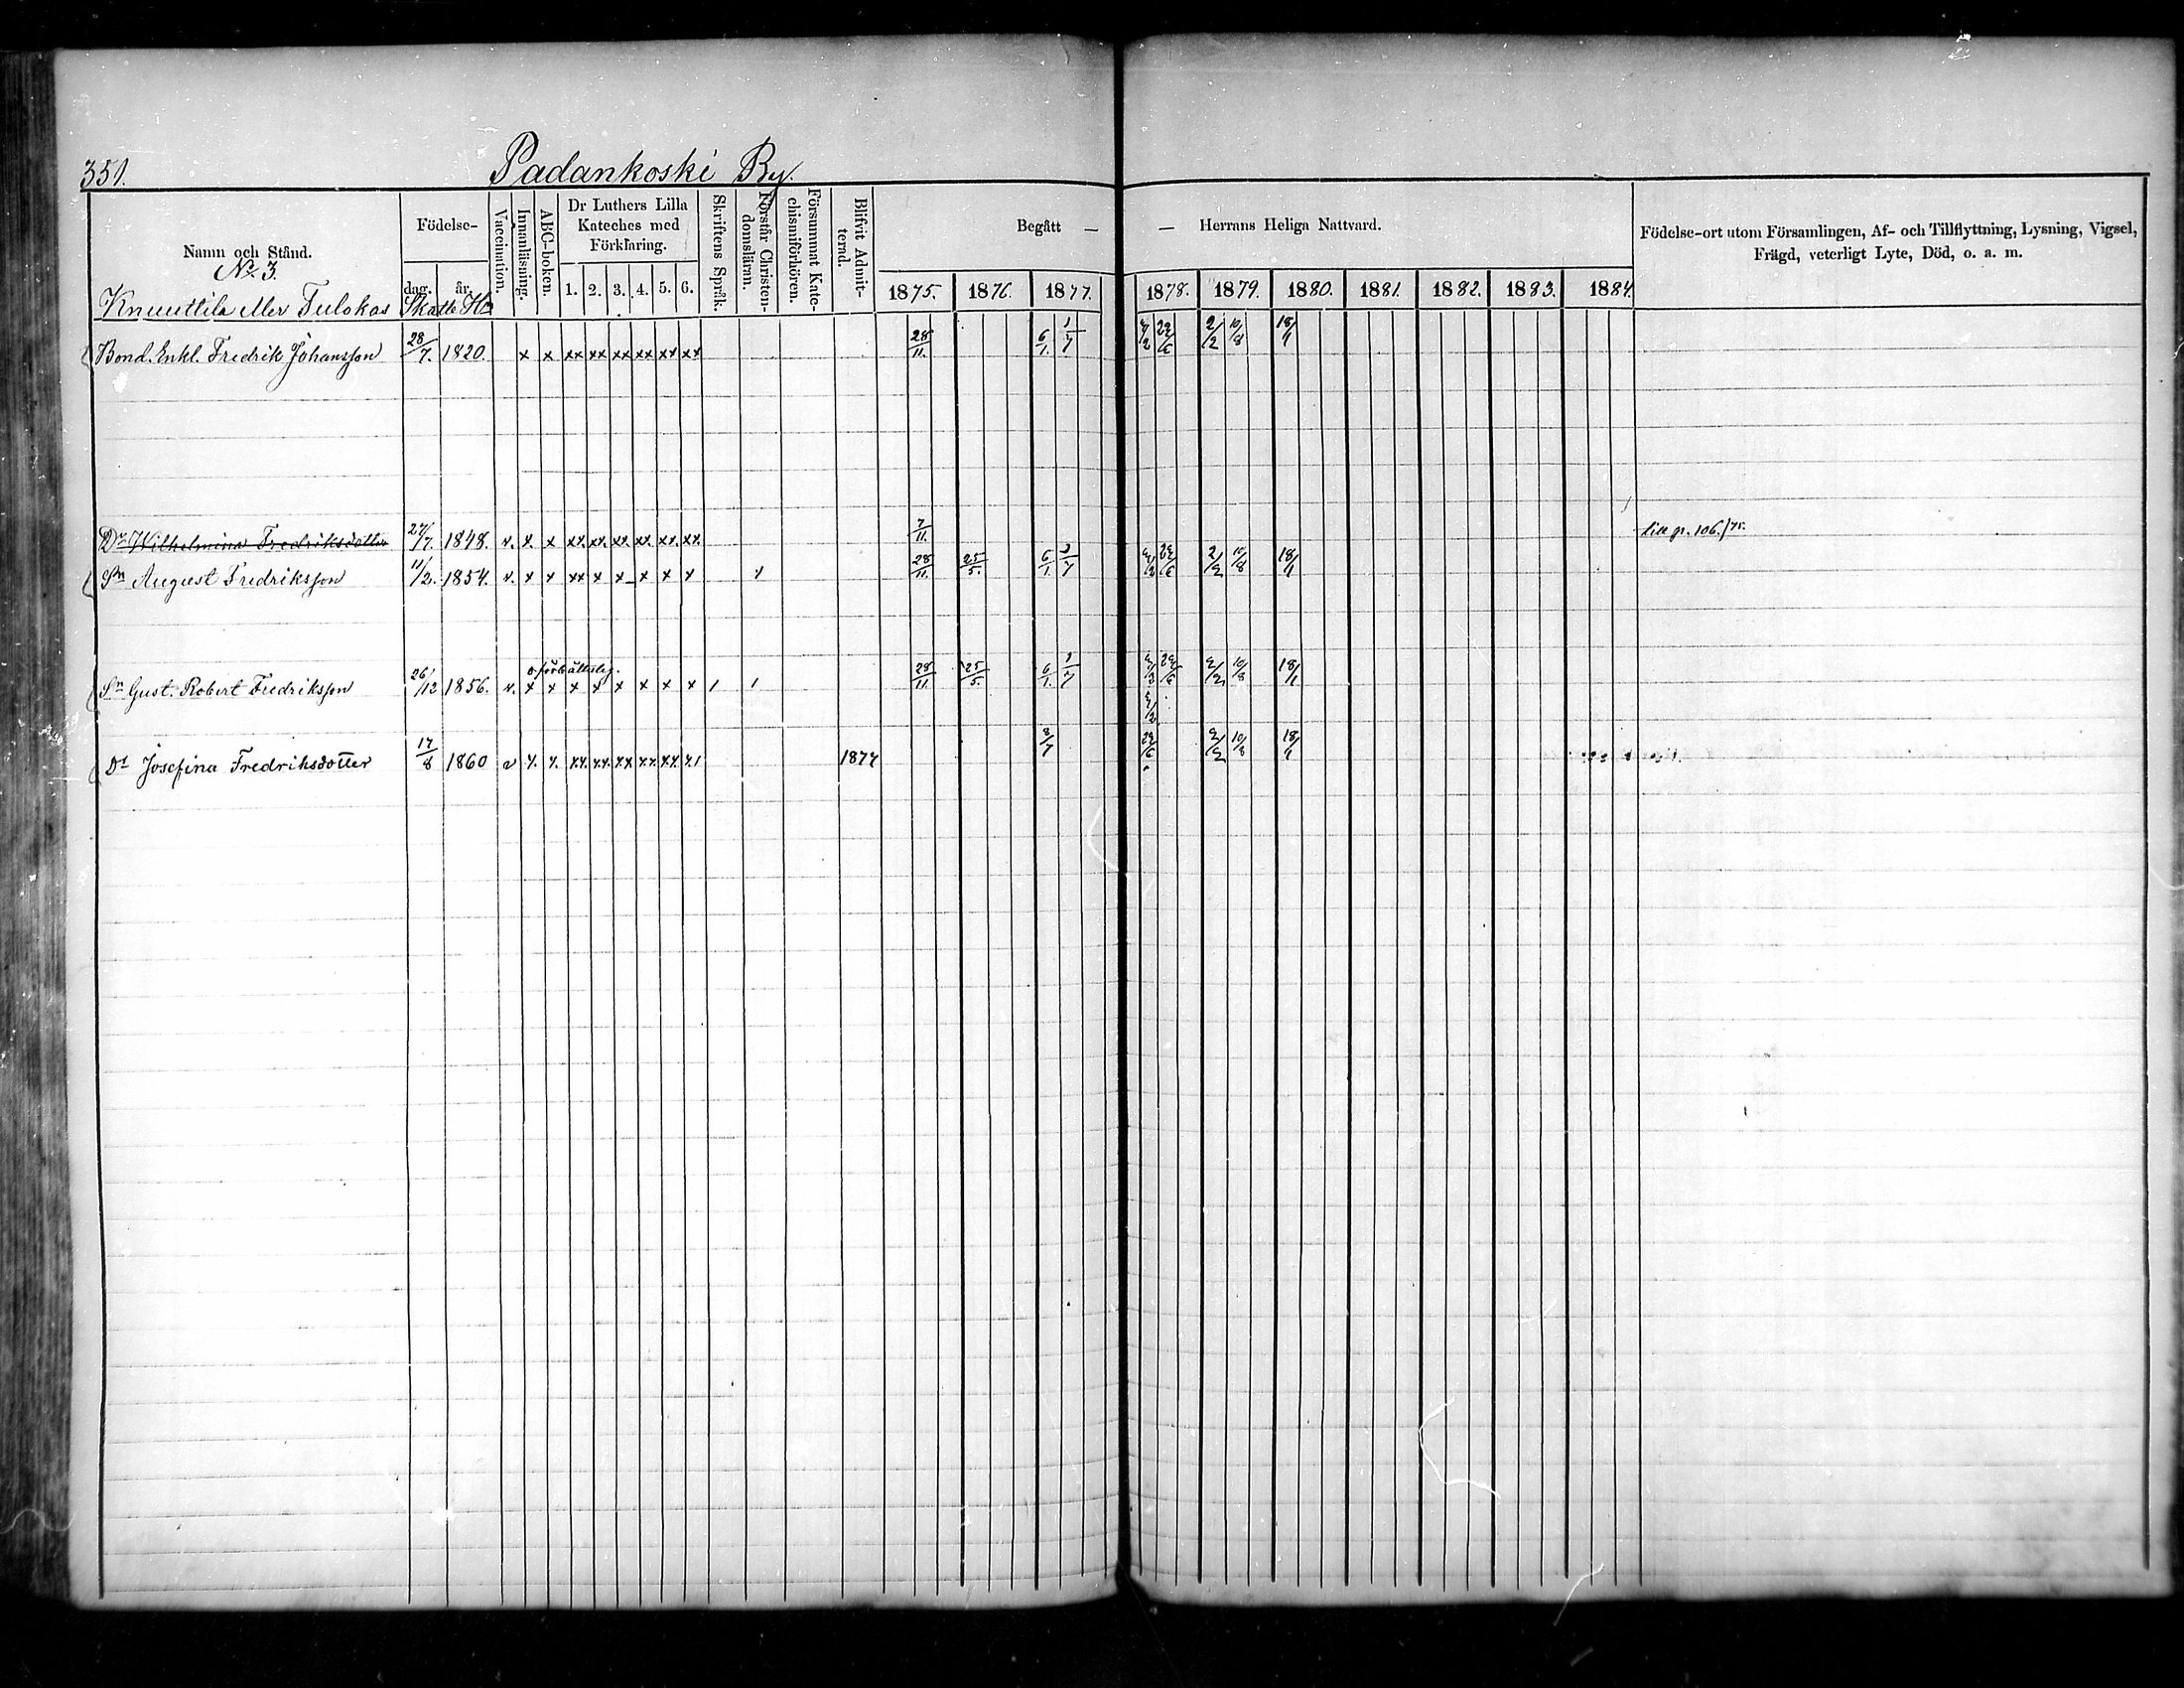 351.
Padankoski By.
Namn och Stånd.
Födelse-
dag. år.
Vaccination.
Innanläsning.
ABC-boken.
Dr Luthers Lilla Kateches med Förklaring.
1. 2. 3. 4. 5. 6.
Skriftens Språk.
Förstår Christendomsläran.
Försummat Katechismiförhören.
Blifvit Admitterad.
Begått — — Herrans Heliga Nattvard.
1875. 1876. 1877. 1878. 1879. 1880. 1881. 1882. 1883. 1884.
Födelse-ort utom Församlingen, Af- och Tillflyttning, Lysning, Vigsel,
Frägd, veterligt Lyte, Död, o. a. m.
No 3.
Knuuttila eller Tulokas Skatte Hn
Bond. Enkl. Fredrik Johansson 28/7. 1820. x x xx xx xx xx xx xx 28/11. 6/1. 1/7 2/2 10/8 18/1
Dr Wilhelmina Fredriksdotter 27/7. 1848. v. x. x xx. xx. xx. xx. xx. xx. 7/11. till pr. 106./75.
Sn August Fredriksson 11/2. 1854. v. x x xx x x x x x x 28/11. 25/5. 6/1. 2/2 10/8 18/1
Sn Gust. Robert Fredriksson 26/12 1856. v. x x x x x x x x 1 1 28/11. 25/5. 6/1. 2/2 10/8 18/1
Dr Josefina Fredriksdotter 17/8 1860 v x. x. xx. xx. xx xx. xx. x1 1877 2/2 10/8 18/1